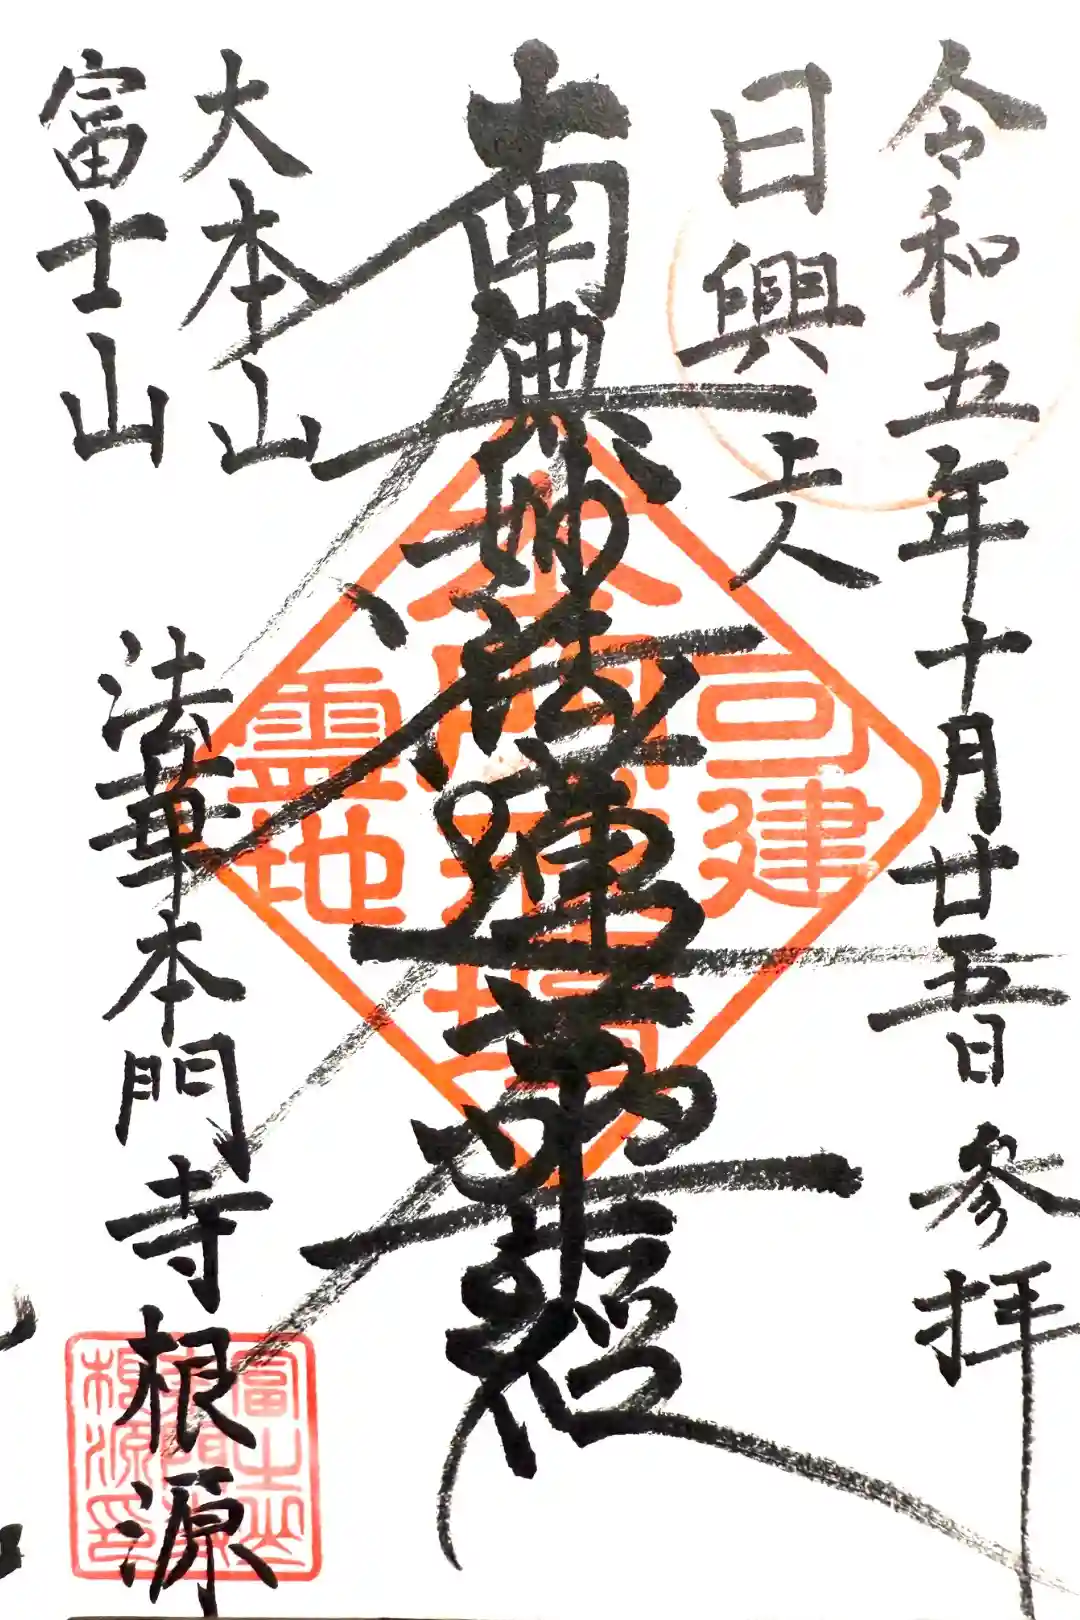 令和五年十月廿五日 参拝
日興上人
南無妙法蓮華經
大本山
富士山 法華本門寺根源
可建
霊地
富士山
本門寺
根源印